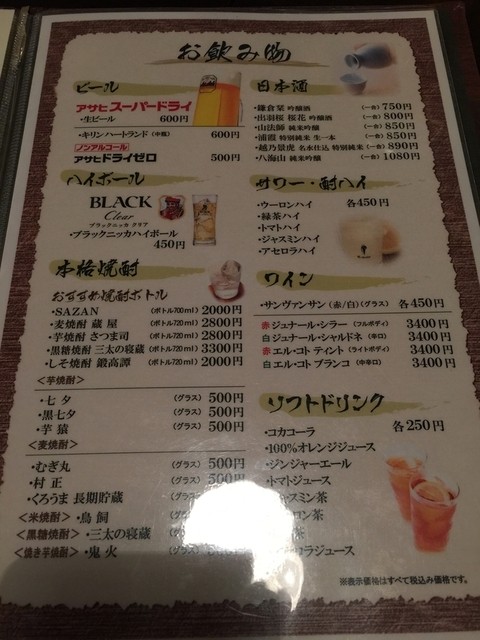 お飲み物
ビール
アサヒスーパードライ
・生ビール 600円
・キリン ハートランド (中瓶) 600円
ノンアルコール
アサヒドライゼロ 500円
ハイボール
BLACK
Clear
ブラックニッカ クリア
・ブラックニッカハイボール
450円
本格焼酎
おすすめ焼酎ボトル
・SAZAN (ボトル700ml) 2000円
・麦焼酎 蔵屋 (ボトル720ml) 2800円
・芋焼酎 さつま司 (ボトル720ml) 2800円
・黒糖焼酎 三太の寝蔵 (ボトル720ml) 3300円
・しそ焼酎 鍛高譚 (ボトル720ml) 2000円
<芋焼酎>
・七夕 (グラス) 500円
・黒七夕 (グラス) 500円
・芋猿 (グラス) 500円
<麦焼酎>
・むぎ丸 (グラス) 500円
・村正 (グラス) 500円
・くろうま 長期貯蔵 (グラス) 500円
<米焼酎> ・鳥飼 (グラス)
<黒糖焼酎> ・三太の寝蔵 (グラス)
<焼き芋焼酎> ・鬼火 (グラス)
日本酒
・鎌倉栞 吟醸酒 (一合) 750円
・出羽桜 桜花 吟醸酒 (一合) 800円
・山法師 純米吟醸 (一合) 850円
・浦霞 特別純米 生一本 (一合) 850円
・越乃景虎 名水仕込 特別純米 (一合) 890円
・八海山 純米吟醸 (一合) 1080円
サワー・酎ハイ
・ウーロンハイ 各450円
・緑茶ハイ
・トマトハイ
・ジャスミンハイ
・アセロラハイ
ワイン
・サンヴァンサン (赤/白) (グラス) 各450円
赤 ジュナール・シラー (フルボディ) 3400円
白 ジュナール・シャルドネ (辛口) 3400円
赤 エル・コト ティント (ライトボディ) 3400円
白 エル・コト ブランコ (中辛口) 3400円
ソフトドリンク
・コカコーラ 各250円
・100%オレンジジュース
・ジンジャーエール
・トマトジュース
ジャスミン茶
ロン茶
茶
ロラジュース
※表示価格はすべて税込み価格です。